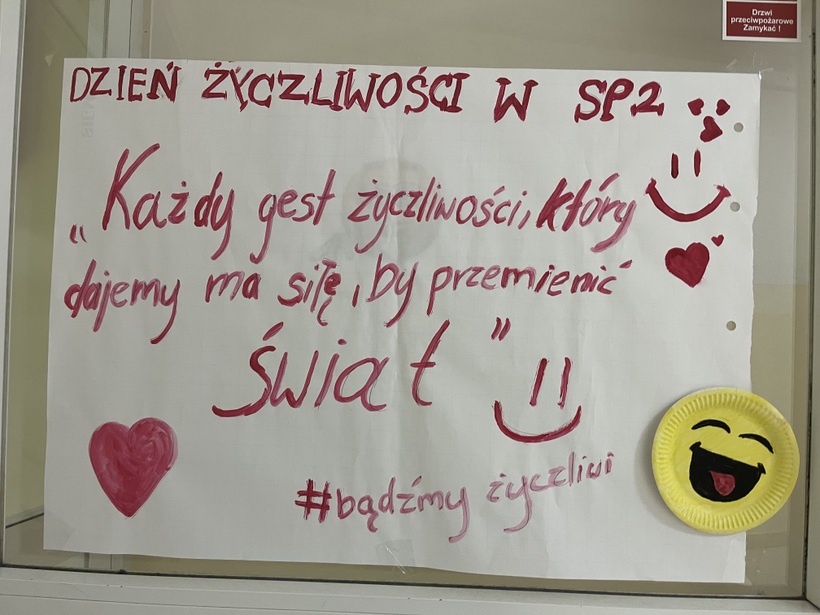 Drzwi
przeciwpożarowe
Zamykać !
DZIEŃ ŻYCZLIWOŚCI W SP2
„Każdy gest życzliwości, który
dajemy ma siłę, by przemienić
świat"
#bądźmy życzliwi